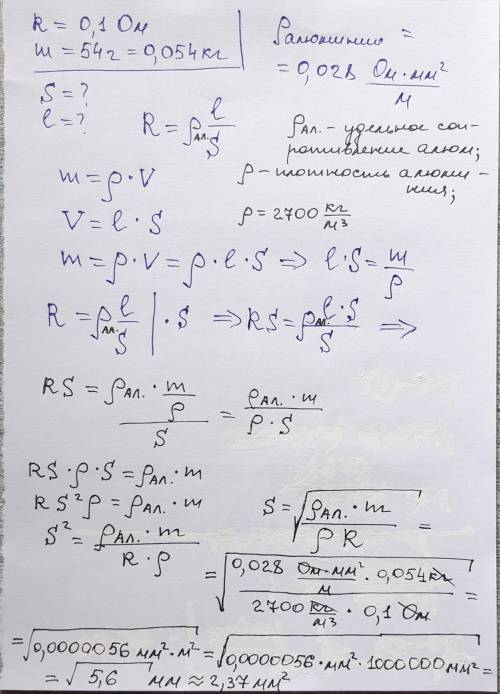 R = 0,1 Ом
m = 54г = 0,054 кг
ρалюминия =
= 0,028 Ом·мм²/м
S = ?
l = ?
R = ρАл. l/S
ρАл. – удельное соп-
ротивление алюм;
m = ρ·V
ρ – плотность алюми-
ния;
V = l·S
ρ = 2700 кг/м³
m = ρ·V = ρ·l·S ⇒ l·S = m/ρ
R = ρАл. l/S | ·S ⇒ RS = ρАл. l·S/S ⇒
RS = (ρАл.· m/ρ)/S = ρАл.·m/ρ·S
RS·ρ·S = ρАл.·m
RS²ρ = ρАл.·m
S = √(ρАл.·m/ρR) =
S² = ρАл.·m/R·ρ
= √(0,028 Ом·мм²/м · 0,054кг / 2700 кг/м³ · 0,1 Ом) =
= √(0,0000056 мм²·м²) = √(0,0000056·мм²·1000000мм²) =
= √5,6 мм ≈ 2,37 мм²